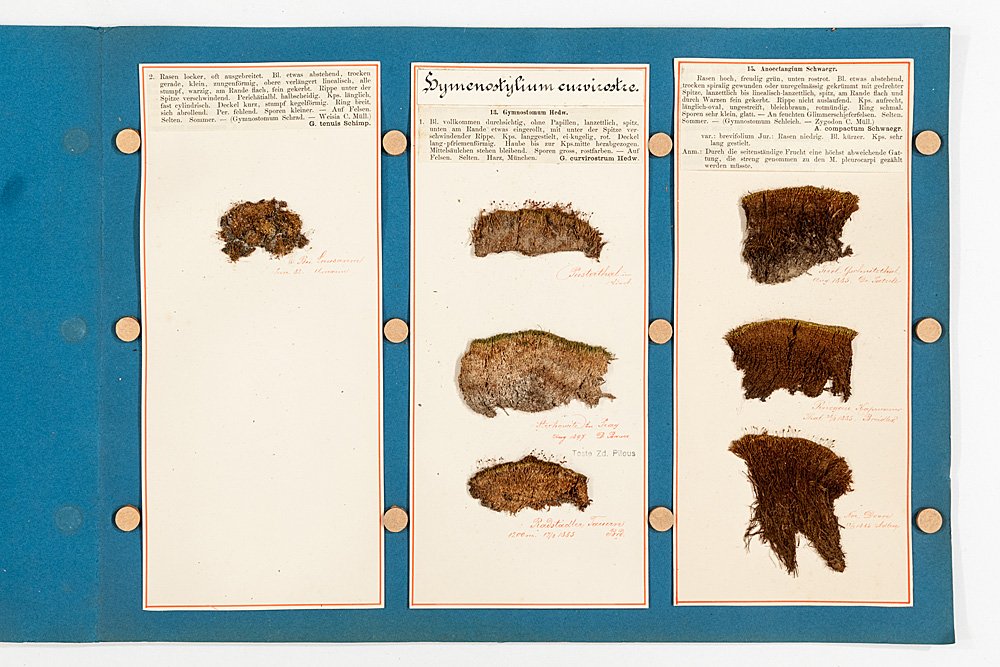 2. Rasen locker, oft ausgebreitet. Bl. etwas abstehend, trocken
gerade, klein, zungenförmig, obere verlängert linealisch, alle
stumpf, warzig, am Rande flach, fein gekerbt. Rippe unter der
Spitze verschwindend. Perichätialbl. halbscheidig. Kps. länglich,
fast cylindrisch. Deckel kurz, stumpf kegelförmig. Ring breit,
sich abrollend. Per. fehlend. Sporen kleiner. — Auf Felsen.
Selten. Sommer. — (Gymnostomum Schrad. — Weisia C. Müll.)
G. tenuis Schimp.
Hymenostylium curvirostre.
13. Gymnostomum Hedw.
1. Bl. vollkommen durchsichtig, ohne Papillen, lanzettlich, spitz,
unten am Rande etwas eingerollt, mit unter der Spitze ver-
schwindender Rippe. Kps. langgestielt, ei-kugelig, rot. Deckel
lang-pfriemenförmig. Haube bis zur Kps.mitte herabgezogen.
Mittelsäulchen stehen bleibend. Sporen gross, rostfarben. — Auf
Felsen. Selten. Harz, München. G. curvirostrum Hedw.
Pusterthal
Aug 1897
Toste Zd. Pilous
Radstädter Tauern
1200m.
15. Anoectangium Schwaegr.
Rasen hoch, freudig grün, unten rostrot. Bl. etwas abstehend,
trocken spiralig gewunden oder unregelmässig gekrümmt mit gedrehter
Spitze, lanzettlich bis linealisch lanzettlich, spitz, am Rande flach und
durch Warzen fein gekerbt. Rippe nicht auslaufend. Kps. aufrecht,
länglich-oval, ungestreift, bleichbraun, rotmündig. Ring schmal.
Sporen sehr klein, glatt. — An feuchten Glimmerschieferfelsen. Selten.
Sommer. — (Gymnostomum Schleich. — Zygodon C. Müll.)
A. compactum Schwaegr.
var.: brevifolium Jur.: Rasen niedrig. Bl. kürzer. Kps. sehr
lang gestielt.
Anm.: Durch die seitenständige Frucht eine höchst abweichende Gat-
tung, die streng genommen zu den M. pleurocarpi gezählt
werden müsste.